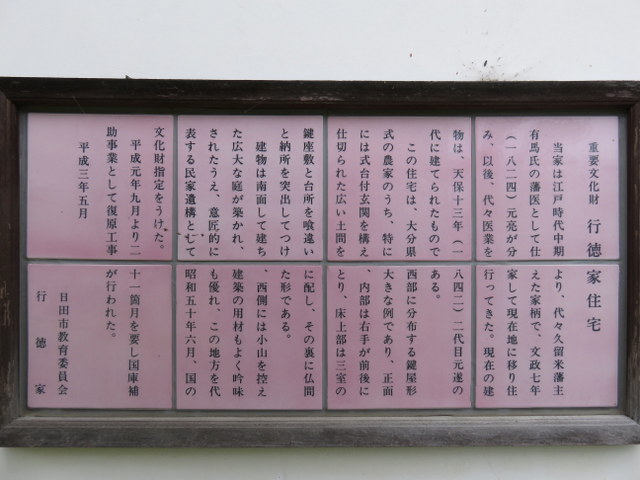 重要文化財 行徳家住宅
当家は江戸時代中期より、代々久留米藩主
有馬氏の藩医として仕えた家柄で、文政七年
(一八二四)元亮が分家して現在地に移り住
み、以後、代々医業を行ってきた。現在の建
物は、天保十三年(一八四二)二代目元遂の
代に建てられたものである。
この住宅は、大分県西部に分布する鍵屋形
式の農家のうち、特に大きな例であり、正面
には式台付玄関を構え、内部は右手が前後に
仕切られた広い土間をとり、床上部は三室の
鍵座敷と台所を喰違いに配し、その裏に仏間
と納所を突出してつけた形である。
建物は南面して建ち、西側には小山を控え
た広大な庭が築かれ、建築の用材もよく吟味
されたうえ、意匠的にも優れ、この地方を代
表する民家遺構として昭和五十年六月、国の
文化財指定をうけた。
平成元年九月より二十一箇月を要し国庫補
助事業として復原工事が行われた。
平成三年五月
日田市教育委員会
行徳家